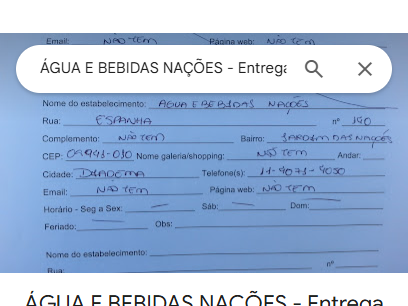 Email: NÃO TEM Página web: NÃO TEM
ÁGUA E BEBIDAS NAÇÕES - Entrega
Nome do estabelecimento: AGUA E BEBIDAS NAÇÕES
Rua: ESPANHA nº 140
Complemento: NÃO TEM Bairro: JARDIM DAS NAÇÕES
CEP: 09941-010 Nome galeria/shopping: NÃO TEM Andar:
Cidade: DIADEMA Telefone(s): 11-4071-4050
Email: NÃO TEM Página web: NÃO TEM
Horário - Seg a Sex: Sáb: Dom:
Feriado: Obs:
Nome do estabelecimento:
Rua: nº
ÁGUA E BEBIDAS NAÇÕES - Entrega